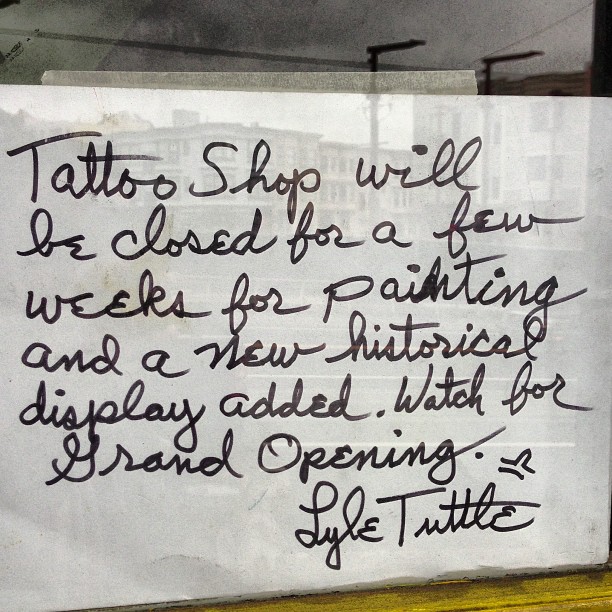 Tattoo Shop will
be closed for a few
weeks for painting
and a new historical
display added. Watch for
Grand Opening.
Lyle Tuttle